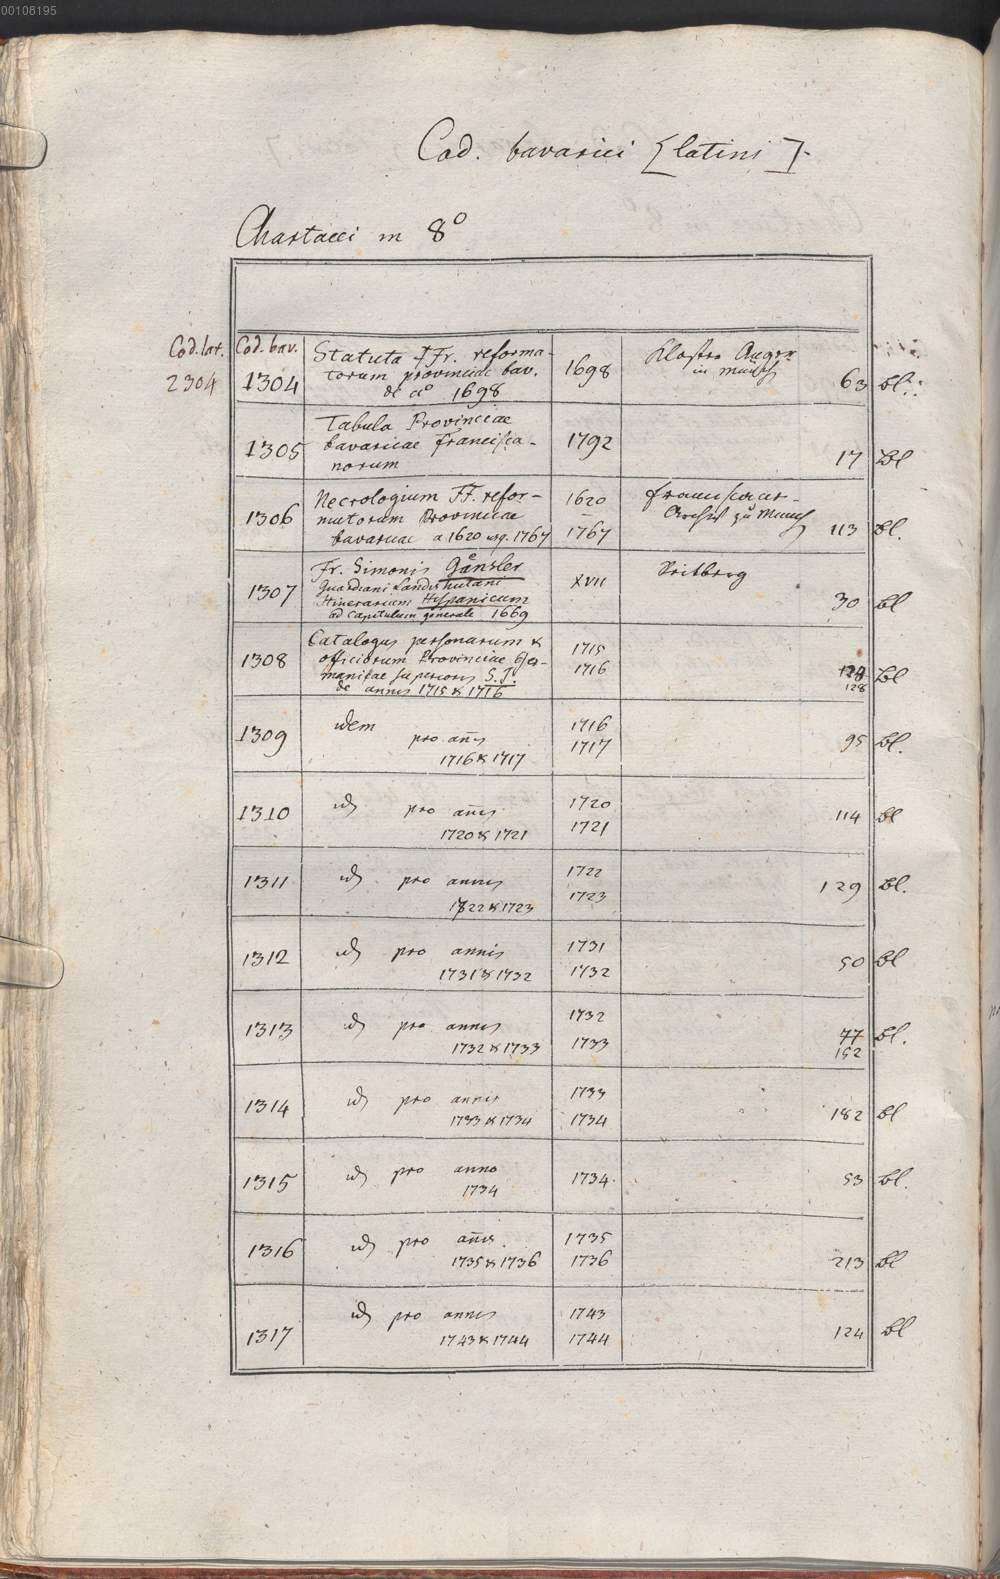 00108195
Cod. bavarici [latini].
Chartacei in 8º
Cod. lat. Cod. bav.
2304 1304 Statuta FFr. reforma- 1698 Kloster Anger
torum provinciae bav. in München 63 bl.
de aº 1698
1305 Tabula Provinciae 1792 17 Bl
bavaricae Francisca-
norum
1306 Necrologium FF. refor- 1620 Franciscaner-
matorum Provinciae – Archiv zu Münch
bavaricae a 1620 usq. 1767 1767 113 Bl.
1307 Fr. Simonis Gänsler XVII
Guardiani Landishutani
Itinerarium Hispanicum 30 bl
ad Capitulum generale 1669
1308 Catalogus personarum & 1715
officiorum Provinciae Ger- 1716
maniae superioris S.J. 128 Bl
de annis 1715 & 1716
1309 idem 1716
pro añis 1717 95 bl.
1716 & 1717
1310 id pro añis 1720 114 bl
1720 & 1721 1721
1311 id pro annis 1722 129 Bl.
1722 & 1723 1723
1312 id pro annis 1731 50 bl
1731 & 1732 1732
1313 id pro annis 1732 77 bl.
1732 & 1733 1733 152
1314 id pro annis 1733
1733 & 1734 1734 182 bl
1315 id pro anno 1734 53 bl.
1734
1316 id pro añis 1735
1735 & 1736 1736 213 bl
1317 id pro annis 1743
1743 & 1744 1744 124 bl